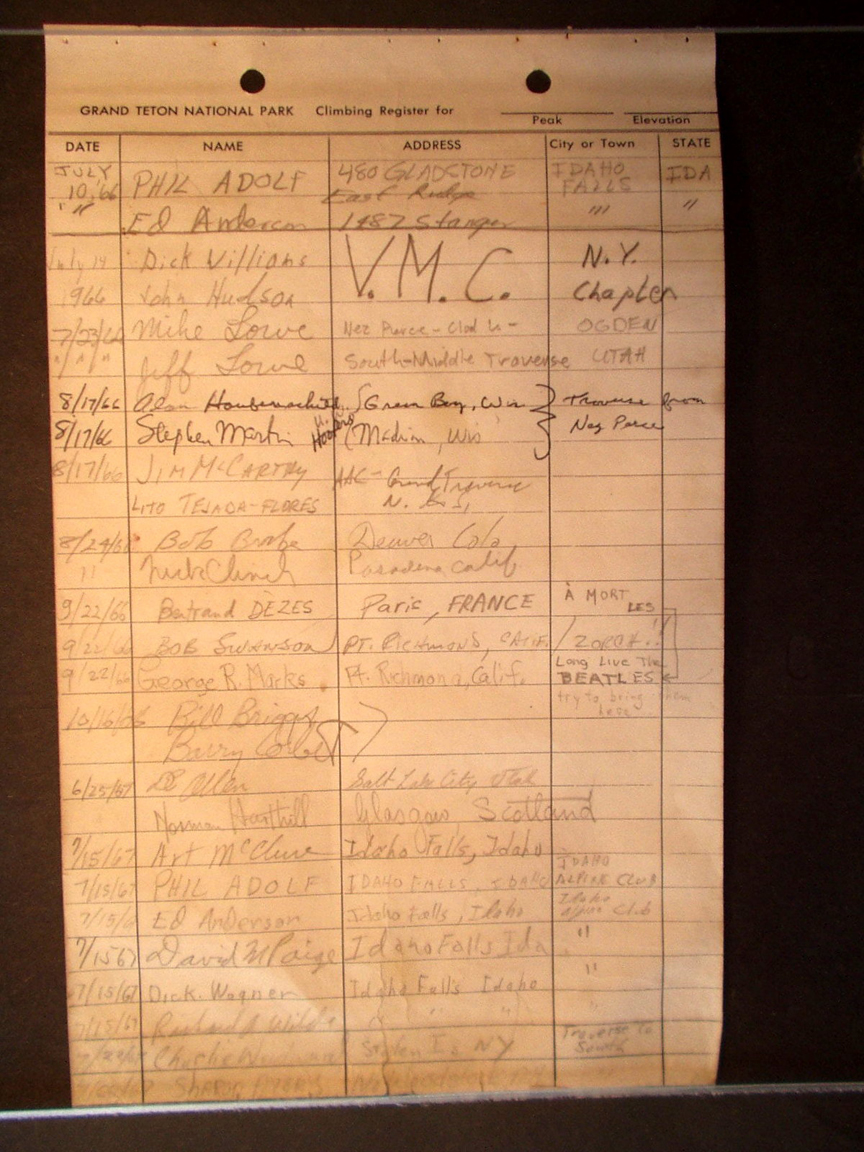 GRAND TETON NATIONAL PARK Climbing Register for
Peak Elevation
DATE NAME ADDRESS City or Town STATE
JULY 10, '66 PHIL ADOLF 480 GLADSTONE IDAHO FALLS IDA
East Ridge
" " Ed Anderson 1487 Stanger " "
July 14 Dick Williams V.M.C. N.Y.
1966 John Hudson Chapter
7/23/66 Mike Lowe Nez Perce - OGDEN
" / " / " Jeff Lowe South-Middle Traverse UTAH
8/17/66 Alan Green Bay, Wis Traverse from
8/17/66 Stephen Martin Hoofers Madison, Wis Nez Perce
8/17/66 JIM McCARTHY AAC - Grand Traverse
LITO TEJADA-FLORES N. S.
8/24/66 Bob Denver Colo,
" Nick Clinch Pasadena Calif
9/22/66 Bertrand DEZES Paris, FRANCE À MORT LES
9/22/66 BOB SWANSON PT. RICHMOND, CALIF. ZORCH!!
9/22/66 George R. Marks Pt. Richmond, Calif. Long Live The BEATLES
try to bring them here
10/16/66 Bill Briggs
Barry Corbet
6/25/67 Allen Salt Lake City, Utah
Norman Harthill Glasgow Scotland
7/15/67 Art McClure Idaho Falls, Idaho IDAHO
7/15/67 PHIL ADOLF IDAHO FALLS, IDAHO ALPINE CLUB
7/15/6 Ed Anderson Idaho Falls, Idaho Idaho Alpine Club
7/15 67 David Paige Idaho Falls Ida "
7/15/67 Dick Wagner Idaho Falls Idaho "
7/15/67 Richard " " "
Charlie NY Traverse To South